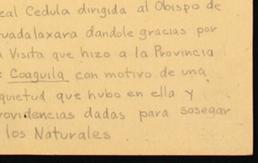 eal Cedula dirigida al Obispo de
uadalaxara dandole gracias por
Visita que hizo a la Provincia
Coaguila con motivo de una
quietud que hubo en ella y
rovidencias dadas para sosegar
los Naturales